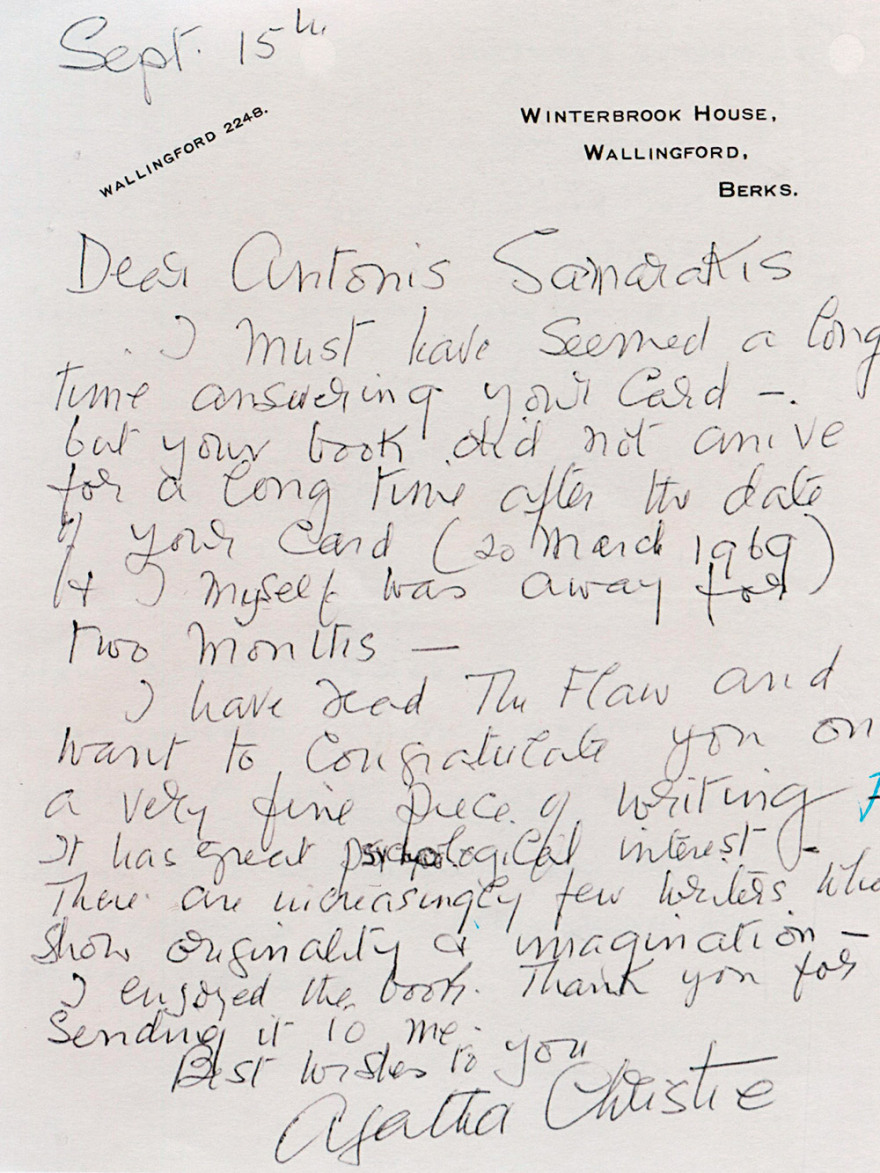 Sept. 15th.
WALLINGFORD 2248.
WINTERBROOK HOUSE,
WALLINGFORD,
BERKS.
Dear Antonis Samarakis
I must have seemed a long
time answering your card –.
but your book did not arrive
for a long time after the date
of your card (20 March 1969)
& I myself was away for
two months —
I have read The Flaw and
want to congratulate you on
a very fine piece of writing
It has great psychological interest –
There are increasingly few writers who
show originality & imagination –
I enjoyed the book. Thank you for
sending it to me.
Best wishes to you
Agatha Christie